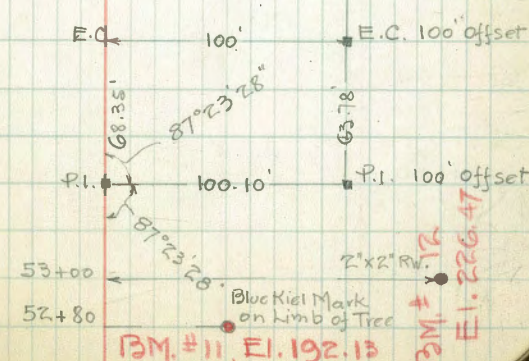 E.C. 100' E.C. 100' Offset
68.35'
87°23'28"
63.78'
P.I. 100.10' P.I. 100' Offset
87°23'28"
53+00 2"x2" RW.
52+80 Blue Kiel Mark
on Limb of Tree
BM. #11 El. 192.13
BM. #12
El. 226.47